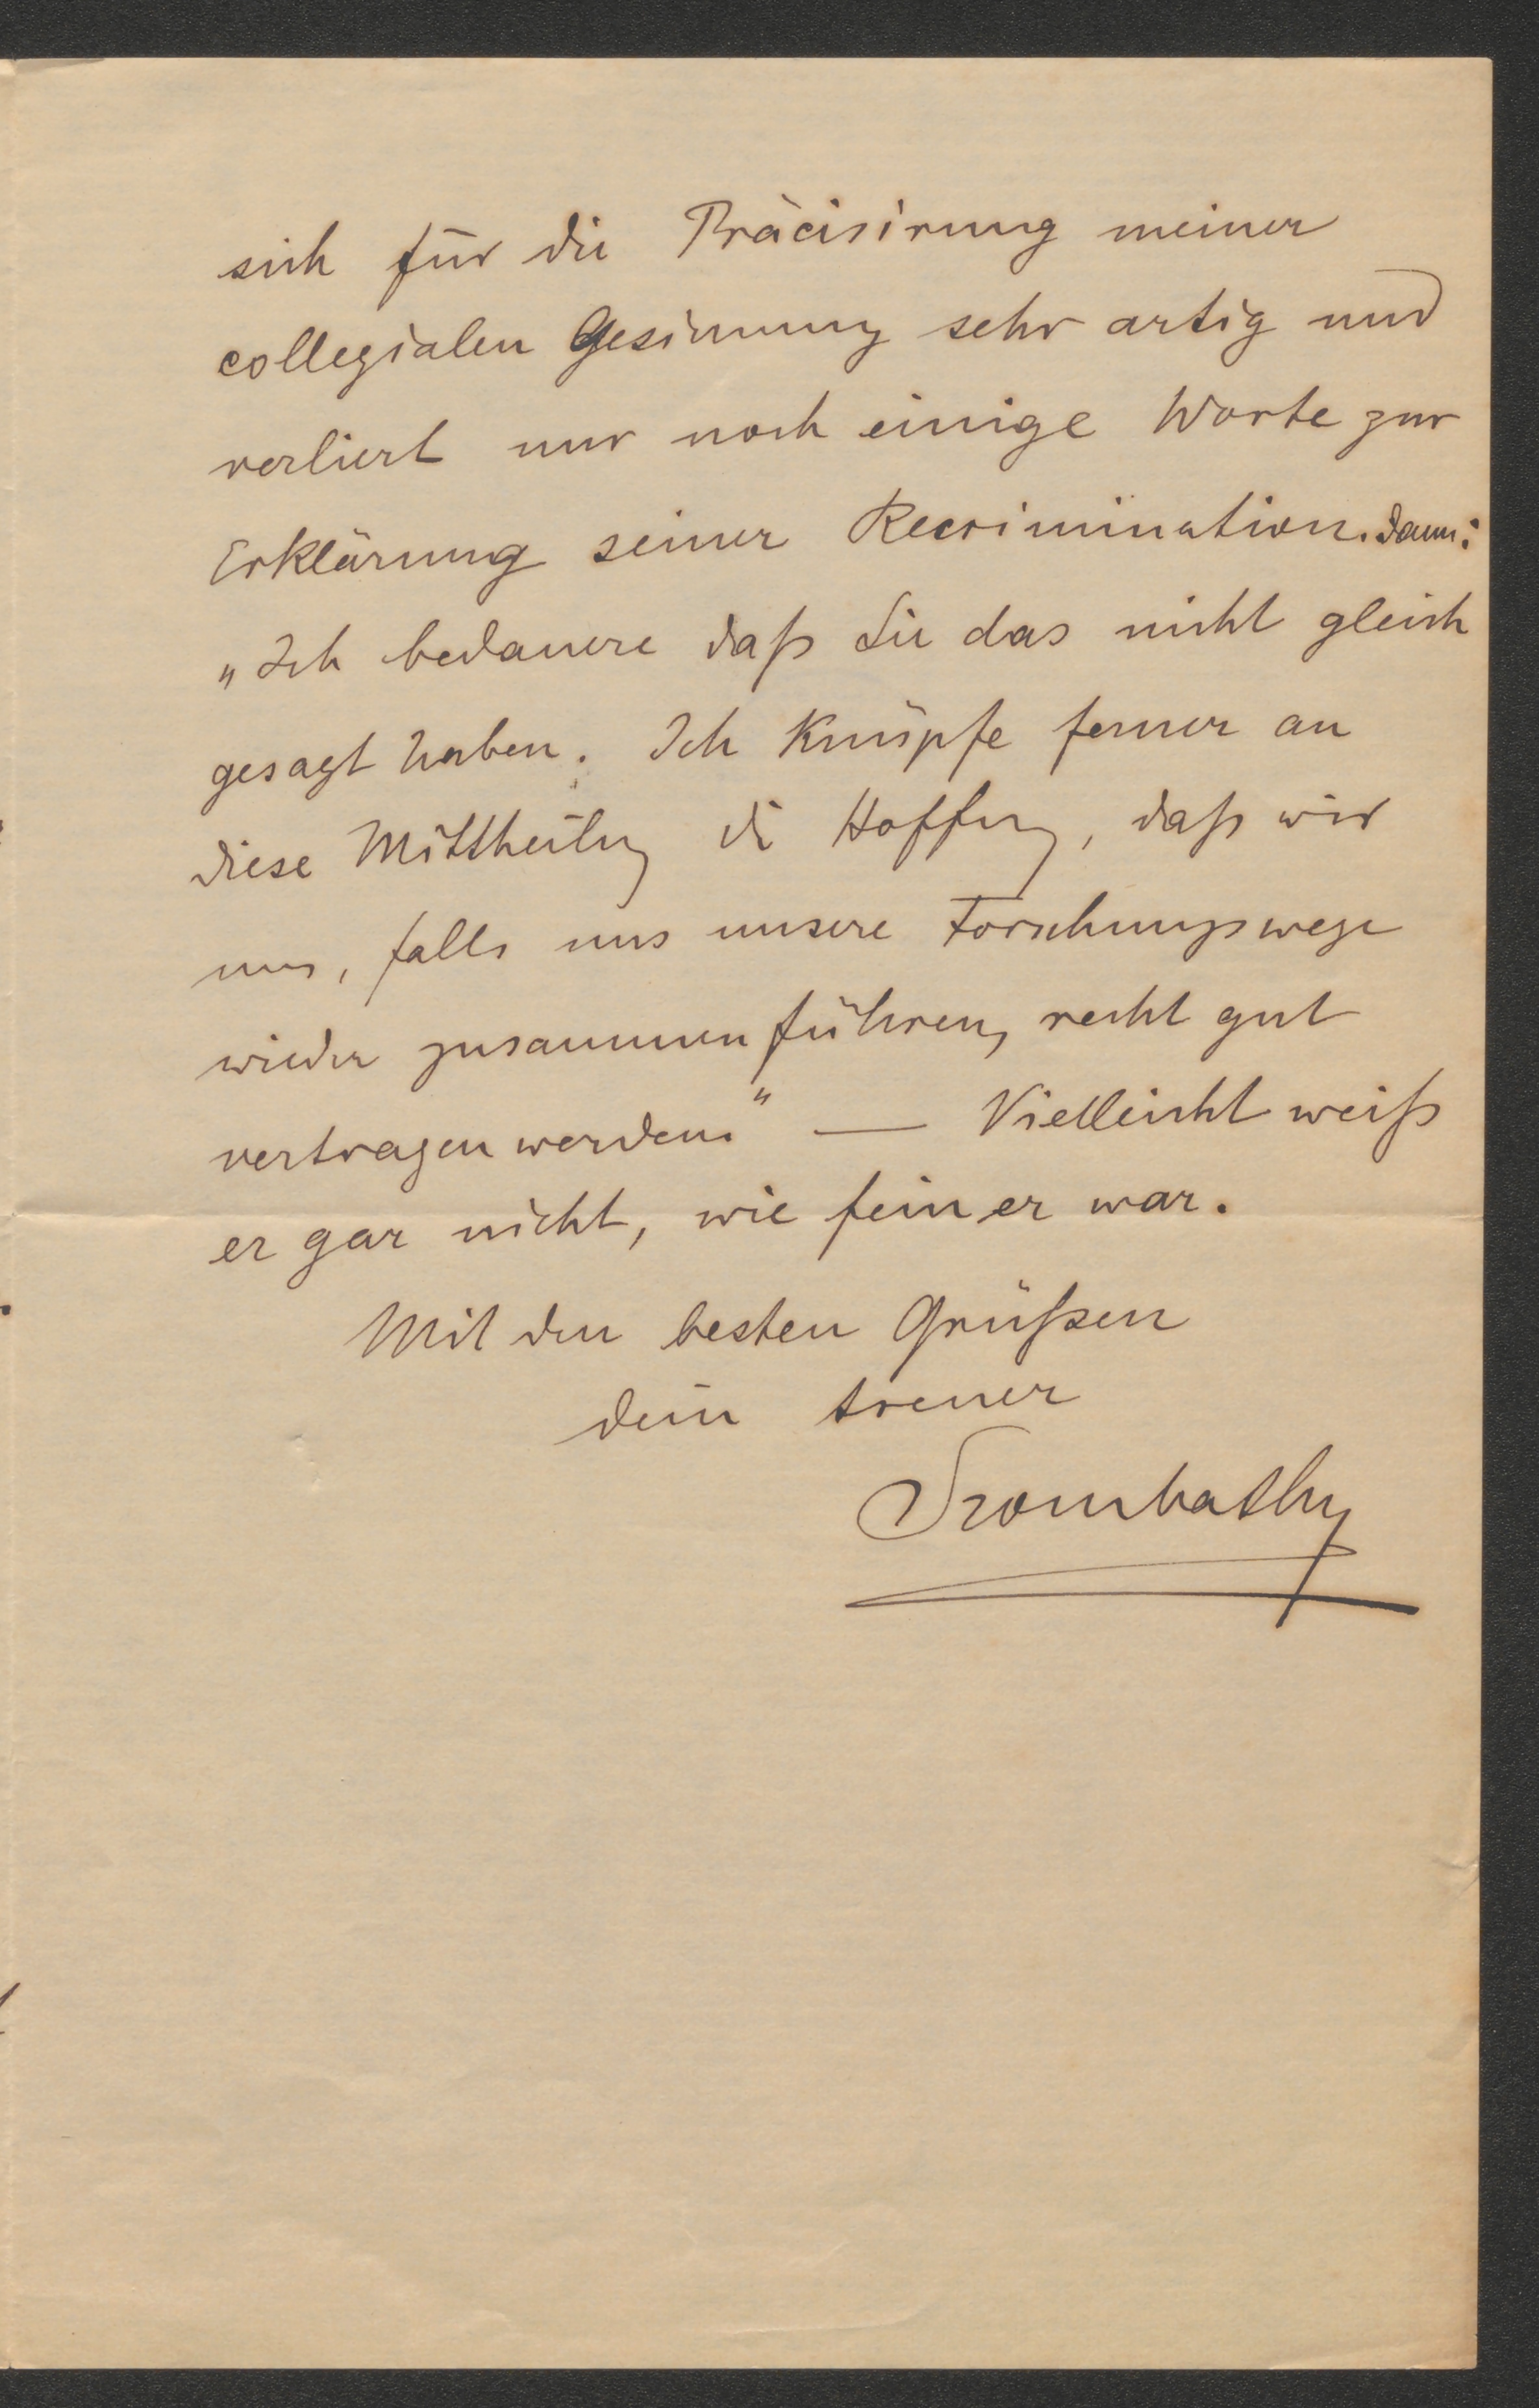 sich für die Präcisirung meiner
collegialen Gesinnung sehr artig und
verliert nur noch einige Worte zur
Erklärung seiner Recrimination. Dann:
„Ich bedauere daß Sie das nicht gleich
gesagt haben. Ich knüpfe ferner an
diese Mittheilng di Hoffng, daß wir
uns, falls uns unsere Forschungswege
wieder zusammenführen, recht gut
vertragen werden." — Vielleicht weiß
er gar nicht, wie fein er war.
Mit den besten Grüßen
dein treuer
Szombathy